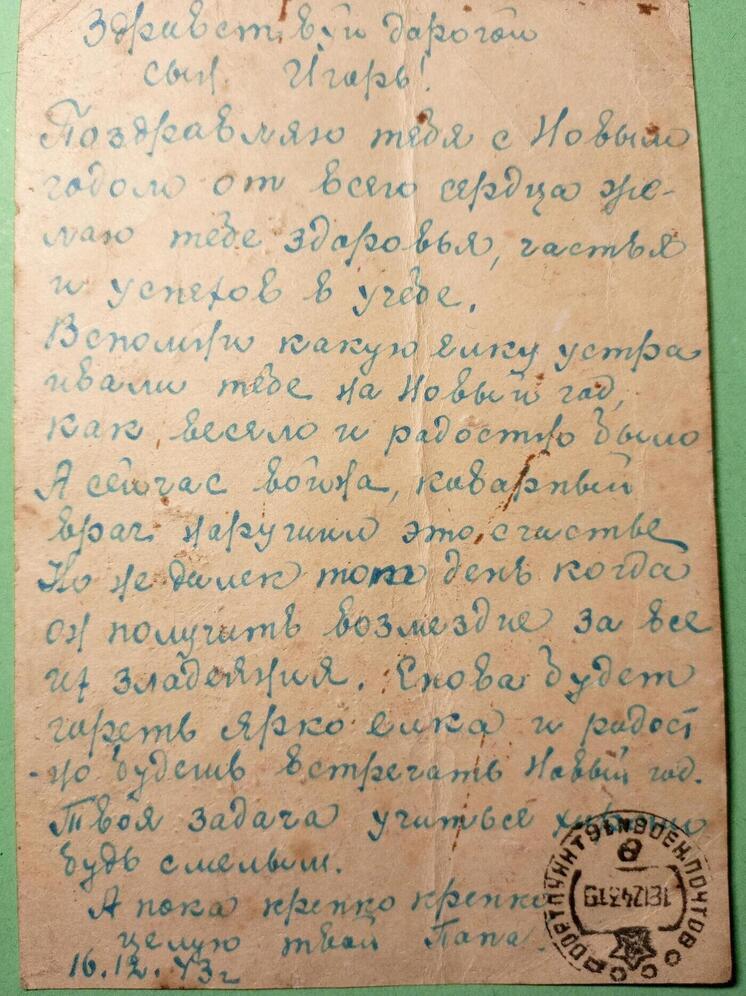 Здравствуй дорогой
сын Игорь!
Поздравляю тебя с Новым
годом от всего сердца же-
лаю тебе здоровья, частья
и успехов в учебе.
Вспомни какую елку устра
ивали тебе на Новый год,
как весело и радостно было
А сейчас война, коварный
враг нарушил это счастье
Но не далек тот день когда
он получить возмездие за все
их злодеяния. Снова будет
гореть ярко елка и радост
-но будешь встречать Новый год.
Твоя задача учиться хорошо
будь смелым.
А пока крепко крепко
целую твой Папа.
16.12.43г
181243 19